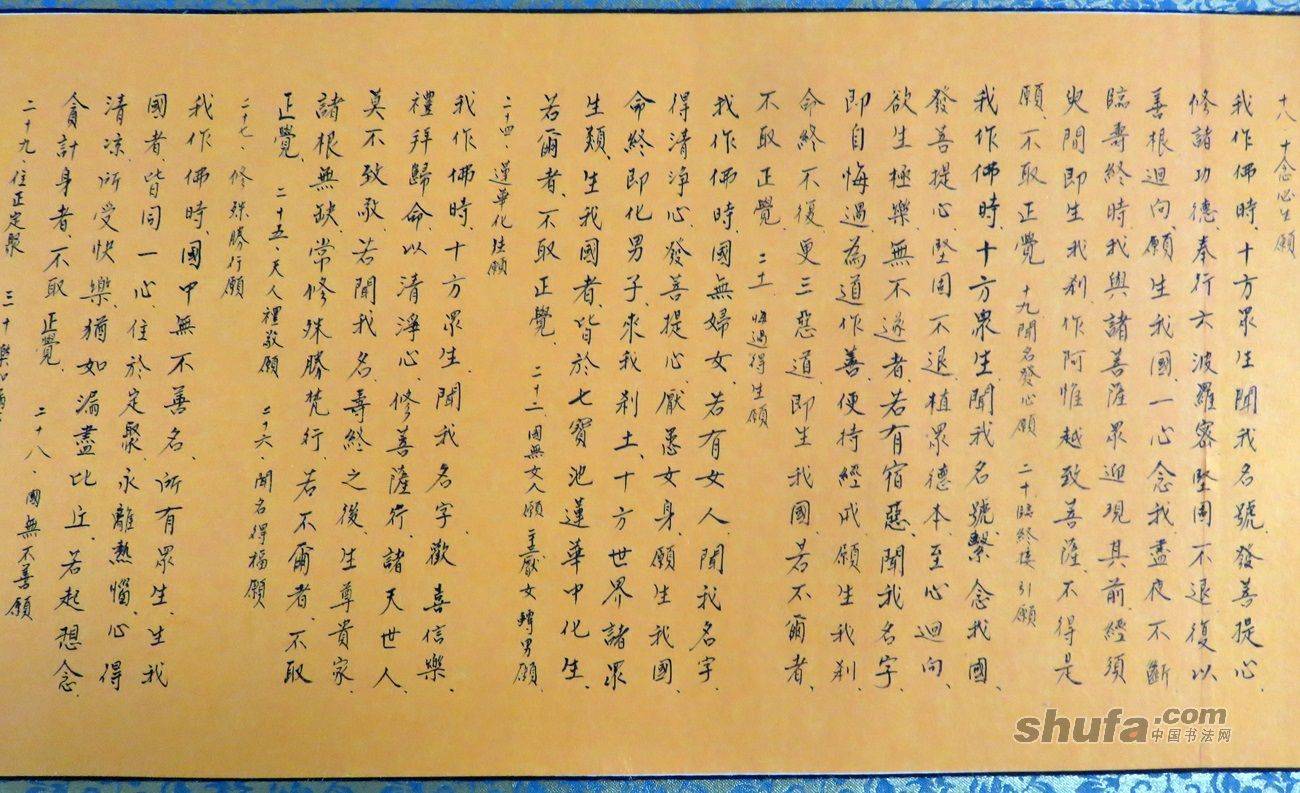 十八、十念必生願
我作佛時、十方眾生聞我名號、發菩提心、
修諸功德、奉行六波羅密、堅固不退、復以
善根迴向、願生我國、一心念我、晝夜不斷、
臨壽終時、我與諸菩薩眾迎現其前、經須
臾間、即生我刹、作阿惟越致菩薩、不得是
願、不取正覺、 十九聞名發心願 二十、臨終接引願
我作佛時、十方眾生、聞我名號、繫念我國、
發菩提心、堅固不退、植眾德本、至心迴向、
欲生極樂、無不遂者、若有宿惡、聞我名字、
即自悔過、為道作善、便持經戒、願生我刹、
命終不復更三惡道、即生我國、若不爾者、
不取正覺、 二十一、悔過得生願
我作佛時、國無婦女、若有女人、聞我名字、
得清淨心、發菩提心、厭患女身、願生我國、
命終即化男子、來我刹土、十方世界諸眾
生類、生我國者、皆於七寶池蓮華中化生、
若爾者、不取正覺、 二十二、國無女人願 厭女轉男願、
二十四 蓮華化生願
我作佛時、十方眾生、聞我名字、歡喜信樂、
禮拜歸命、以清淨心、修菩薩行、諸天世人、
莫不致敬、若聞我名、壽終之後、生尊貴家、
諸根無缺、常修殊勝梵行、若不爾者、不取
正覺、 二十五、天人禮敬願 二十六、聞名得福願
二十七 修殊勝行願
我作佛時、國中無不善名、所有眾生、生我
國者、皆同一心、住於定聚、永離熱惱、心得
清涼、所受快樂、猶如漏盡比丘、若起想念、
貪計身者、不取正覺、 二十八、國無不善願
二十九、住正定聚 三十樂如漏
shufa.com
中国书法网